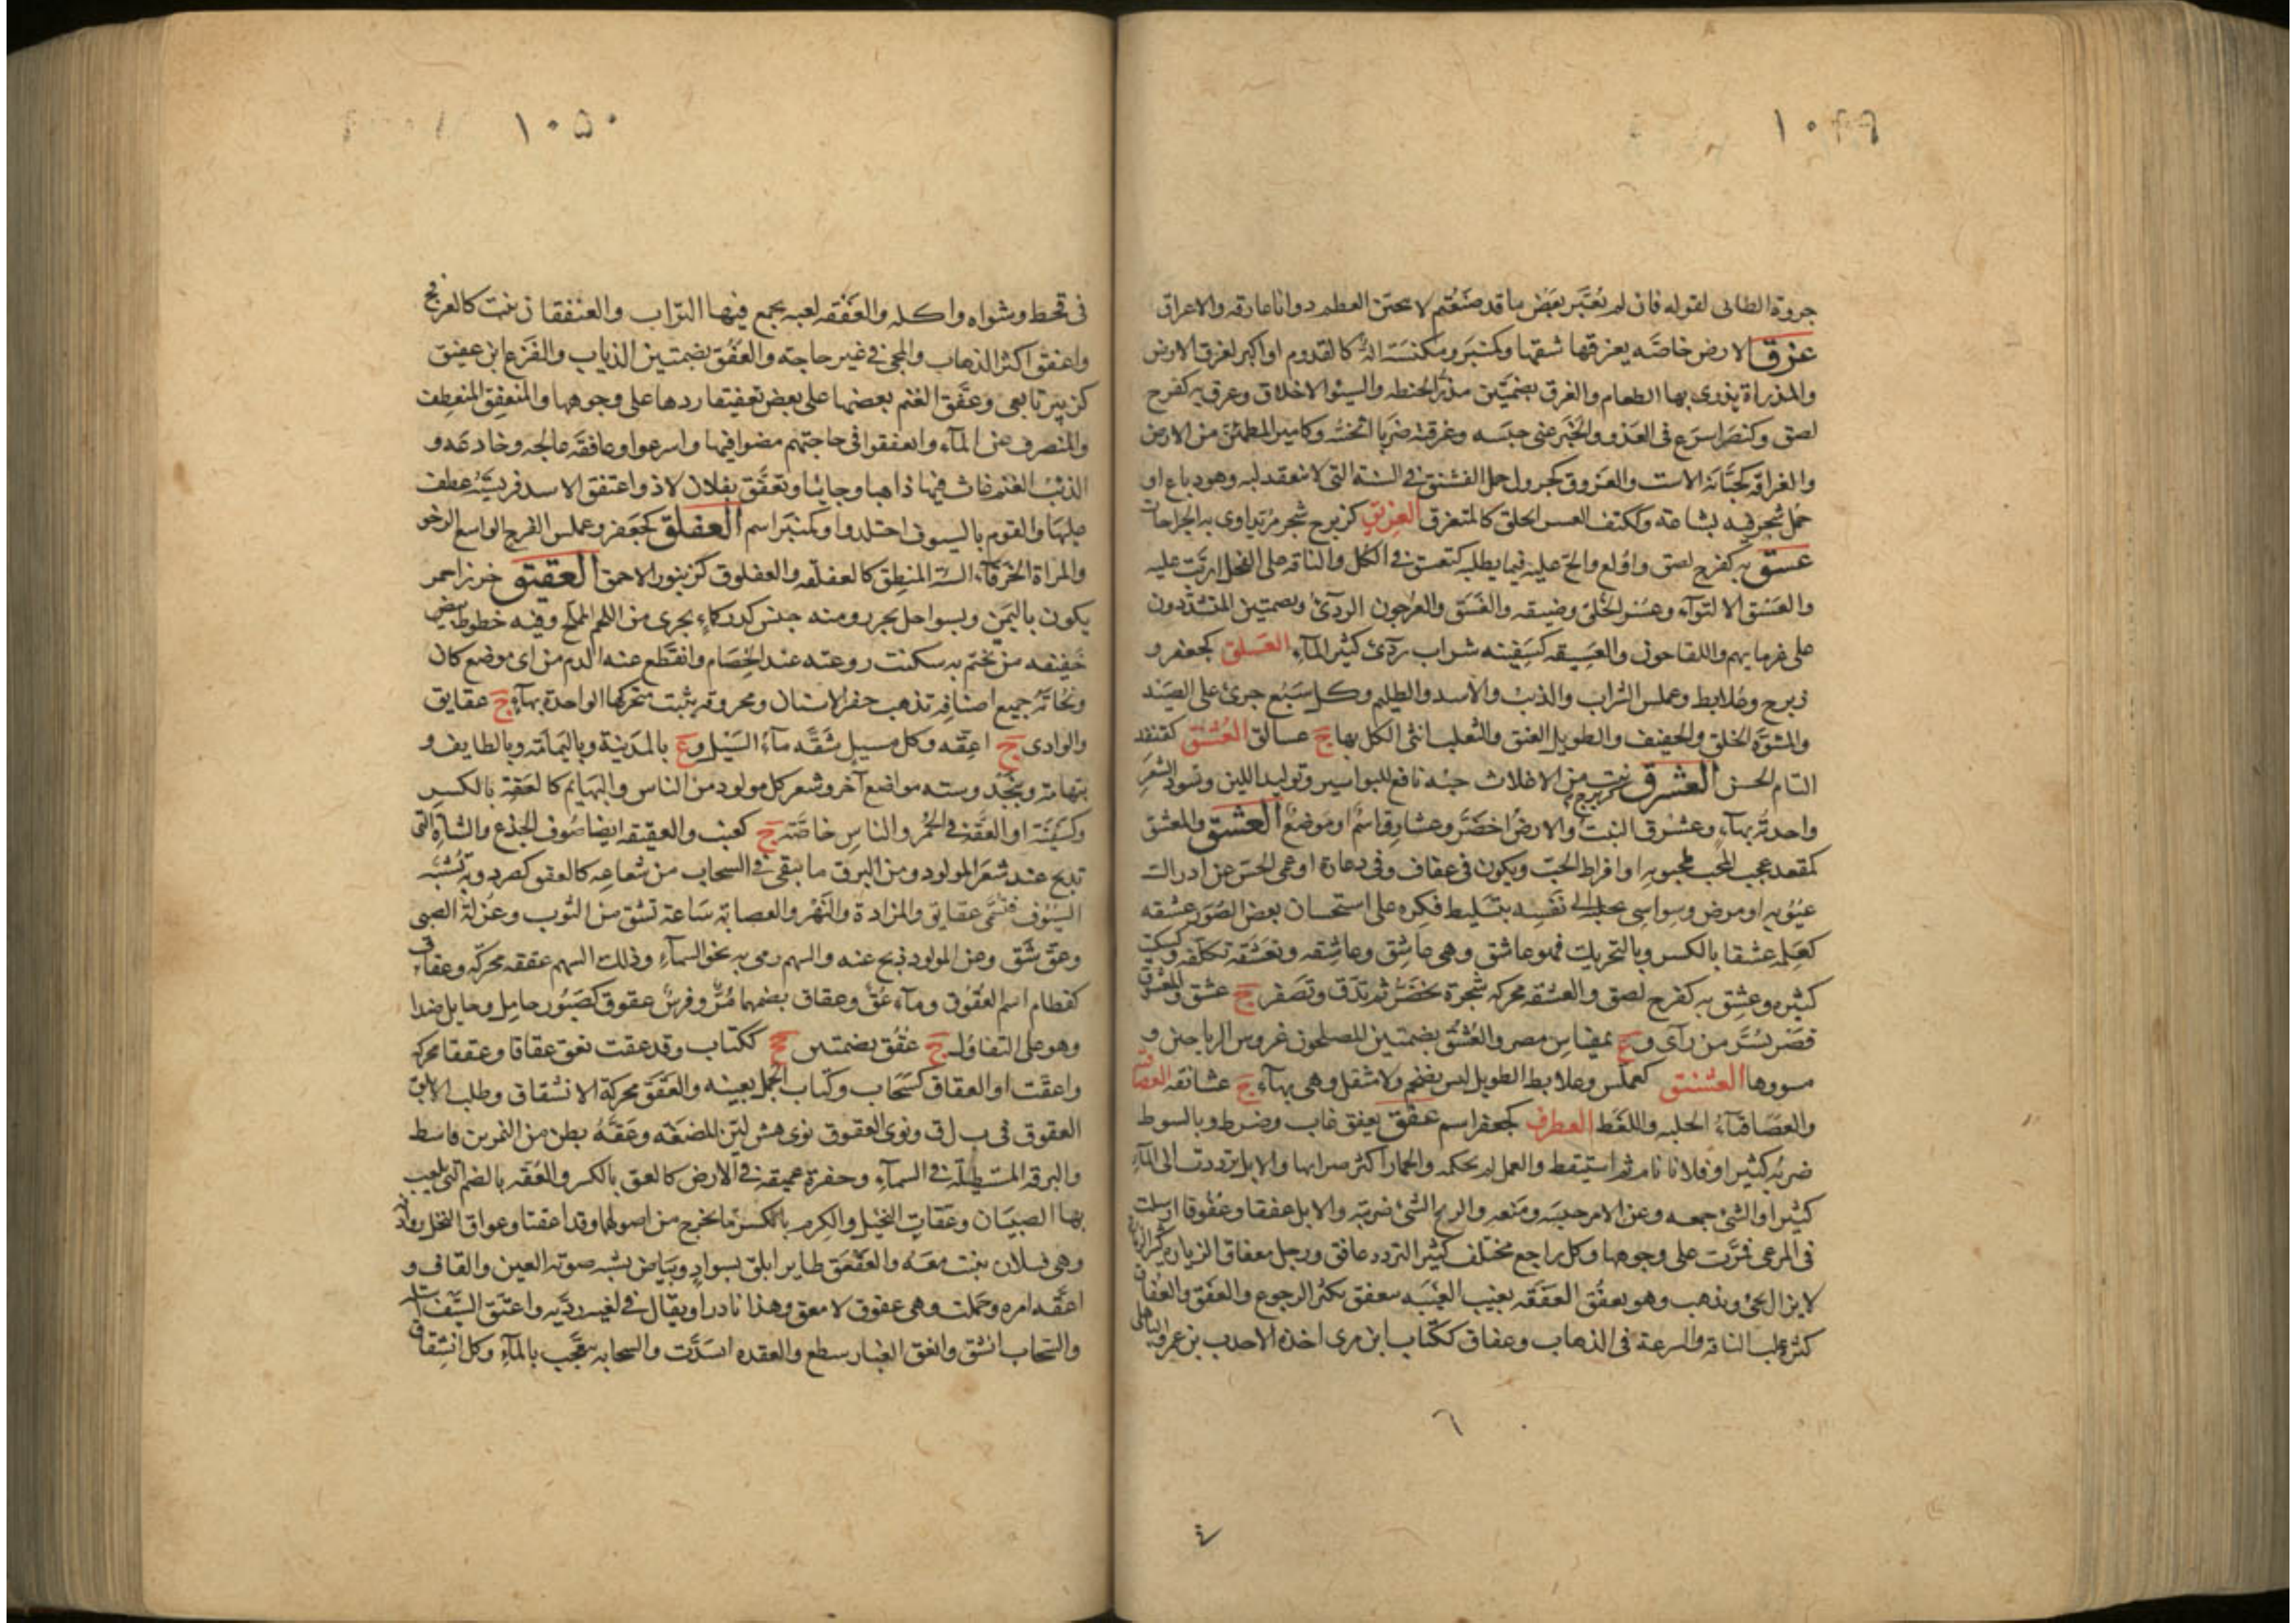 ١٠٤٩
جروة الطائى لقوله فان لم يُغَيَّر بَعْض ما قد صَنَعْتُم لا نتحين العظم ذو انا عارقه والاعراق
عزق الارض خاصّه يعزقها شقها وكمنبر ومكنسة الة كالقدوم او اكبر لعزق الارض
والمذراة يذرى بها الطعام والعزق بضمّتين مذرّ الحنطه والسيئوا الاخلاق وعزق به كفرح
لصق وكنصر اسرع فى العَدْو والخَبَر عنى حبَسَه وعزقته ضربا اثخنته وكامير المطمئن من الارض
والعزاقة كجبّانة الاست والعَزوق كجرول حمل الفستق فى السنة التى لا ينعقد لبه وهو دباغ او
حمل شجر فيه بشاعة وككتف العسر الخلق كالمتعزق العزيق كزبرج شجر مر يتداوى به الجراحات
عسق به كفرح لصق واولع والح عليه فيما يطلبه كتعسق فى الكل والناقة على الفحل اربّت عليه
والعَسَق الالتواء وعسر الخلق وضيقه والعَسَق والعرجون الردىء وبضمتين المتشدّدون
على غرمايهم واللقاحون والعَسِيقه كسفينه شراب ردىء كثير الماء العسلق كجعفر و
زبرج وعُلابط وعملس السراب والذئب والاسد والظليم وكل سَبُع جرىء على الصَيْد
والمشوّه الخلق والخفيف والطويل العنق والثعلب انثى الكل بها ج عسالق العُشنق كقنفذ
التام الحسن العشرق كزبرج نبت من الاغلاث حبه نافع للبواسير وتوليد اللبن وتسود الشَعر
واحدته بهاء وعشرق النبت والارض اخضَرّ وعشارِق اسم او موضع العشق والمعشق
كمقعد عجب المحب بمحبوبه او افراط الحبّ ويكون فى عفاف وفى دعارة او عمى الحسّ عن ادراك
عيوبه او مرض وسواسى يجلبه الى نفسه بتسليط فكره على استحسان بعض الصُوَر عشقه
كعلِمه عشقا بالكسر وبالتحريك فهو عاشق وهى عاشق وعاشقه وتعشّقه تكلّفه وكسكيت
كثيره وعشق به كفرح لصق والعشقه محركه شجرة تخضَرّ ثم تدقّ وتصفر ج عشق والمعشوق
قصر بسُرّ من رآى وع بمقياس مصر والعُشُق بضمتين المصلحون غروس الرياحين و
مسووها العشنق كعملس وعلابط الطويل ليس بضخم ولا مثقل وهى بهاء ج عشانقه العصاقيا
والعصاقياء الجلبه واللغَط العطرق كجعفر اسم عفق يعفق غاب وضرط وبالسوط
ضربه كثيرا وفلانا نام ثم استيقظ والعمل لم يحكمه والحمار اكثر ضرابها والابل ترددت الى الماء
كثيرا والشىء جمعه وعن الامر حبَسَه ومَنعه والريح الشىء ضربته والابل عفقا وعفوقا ارسلت
فى المرعى فمرّت على وجوهها وكل راجع مختلف كثير التردد عافق ورجل معفاق الزيارة كثير الزيارة
لا يزال يجىء ويذهب وهو يعفق العفقه يغيب الغيبه معفق يكثر الرجوع والعَفْق والعفاق
كثرة حلب الناقة والسرعة فى الذهاب وعفاق ككتاب ابن مرى اخذه الاحدب بن عمرو الباهلى
١٠٥٠
فى قحط وشواه واكله والعَفْقه لعبه يجمع فيها التراب والعنفقان نبت كالعرفج
واعفق اكثر الذهاب والمجى فى غير حاجته والعُفُق بضمتين الذياب والفَزَع ابن عفيق
كزبير تابعى وعَفّق الغنم بعضها على بعض تعفيقا ردها على وجوهها والمنعفِق المنعطِف
والمنصرف عن الماء وانعفقوا فى حاجتهم مضوا فيها واسرعوا وعافقَه عالجه وخادعه و
الذئب الغنم عاث فيها ذاهبا وجائيا وتعفّق بفلان لاذ واعتفق الاسد فريسته عطف
عليها والقوم بالسيوف اجتلدوا وكمنبر اسم العفلق كجَعفر وعملس الفرج الواسع الرخو
والمراة الخرقاء السيّئة المنطِق كالعفلقه والعفلوق كزنبور الاحمق العقيق خرز احمر
يكون باليمَن وبسواحل بحر رومنه جنس كدر كماء يجرى من اللحم المملح وفيه خطوط بيض
خفيفه من تختم به سكنت روعته عند الخصام وانقطع عنه الدم من اى موضع كان
ونحاته جميع اصنافه تذهب حفر الاسنان ومحروقه يثبت متحركها الواحدة بهاء ج عقايق
والوادى ج اعقّه وكل مسيل شَقّه ماء السَيْل وع بالمدينة وباليمامة وبالطايف و
بتهامة وبنجْد وسته مواضع آخر وشعر كل مولود من الناس والبهايم كالعقة بالكسر
وكسَفينة او العقّة فى الحُمُر والناس خاصّته ج كعنب والعقيقه ايضا صُوف الجذع والشاة التى
تذبح عند شعَر المولود ومن البرق ما يبقى فى السحاب من شعاعه كالعقق كصرد وبه تشبّه
السيوف فتسمَّى عقايق والمزادة والنَهْر والعصابة ساعة تشق من الثوب وعزلة الصبى
وعق شَقّ وعن المولود ذبح عنه والسهم رمى به نحو السماء وذلك السهم عقيقه محركة وعقاق
كقطام اسم العُقُوق وماء عُقّ وعقاق بضمهما مُرّ وفرس عقوق كصَبُور حامل وحايل ضد او
وهو على التفاؤل ج عُقُق بضمتين جج ككتاب وقد عقت تعق عقاقا وعققا محركة
واعقّت او العقاق كسَحَاب وكتاب الحمل بعينه والعَقَق محركة الانشقاق وطلب الابلق
العقوق فى ب ل ق ونوى العقوق نوى هش ليّن الممضغه وعَقّهُ بطن من النمر بن قاسط
والبرقه المستطيلة فى السماء وحفرة عميقه فى الارض كالعق بالكسر والعُقه بالضم التى يلعب
بها الصبيان وعَقّان النخيل والكرم بالكسر ما يخرج من اصولها وقد اعقتا وعواق النخل روادفه
وهى فسلان تنبت معه والعقعق طاير ابلق بسواد وبياض يشبه صوته العين والقاف و
اعقّه امره وحملت وهى عقوق لا معق وهذا نادر او يقال فى لغية رديّة واعتق السَيف استلّه
والسحاب انشق وانعق الغبار سطع والعقده انشدّت والسحابه تبعّجب بالماء وكل انشقاق